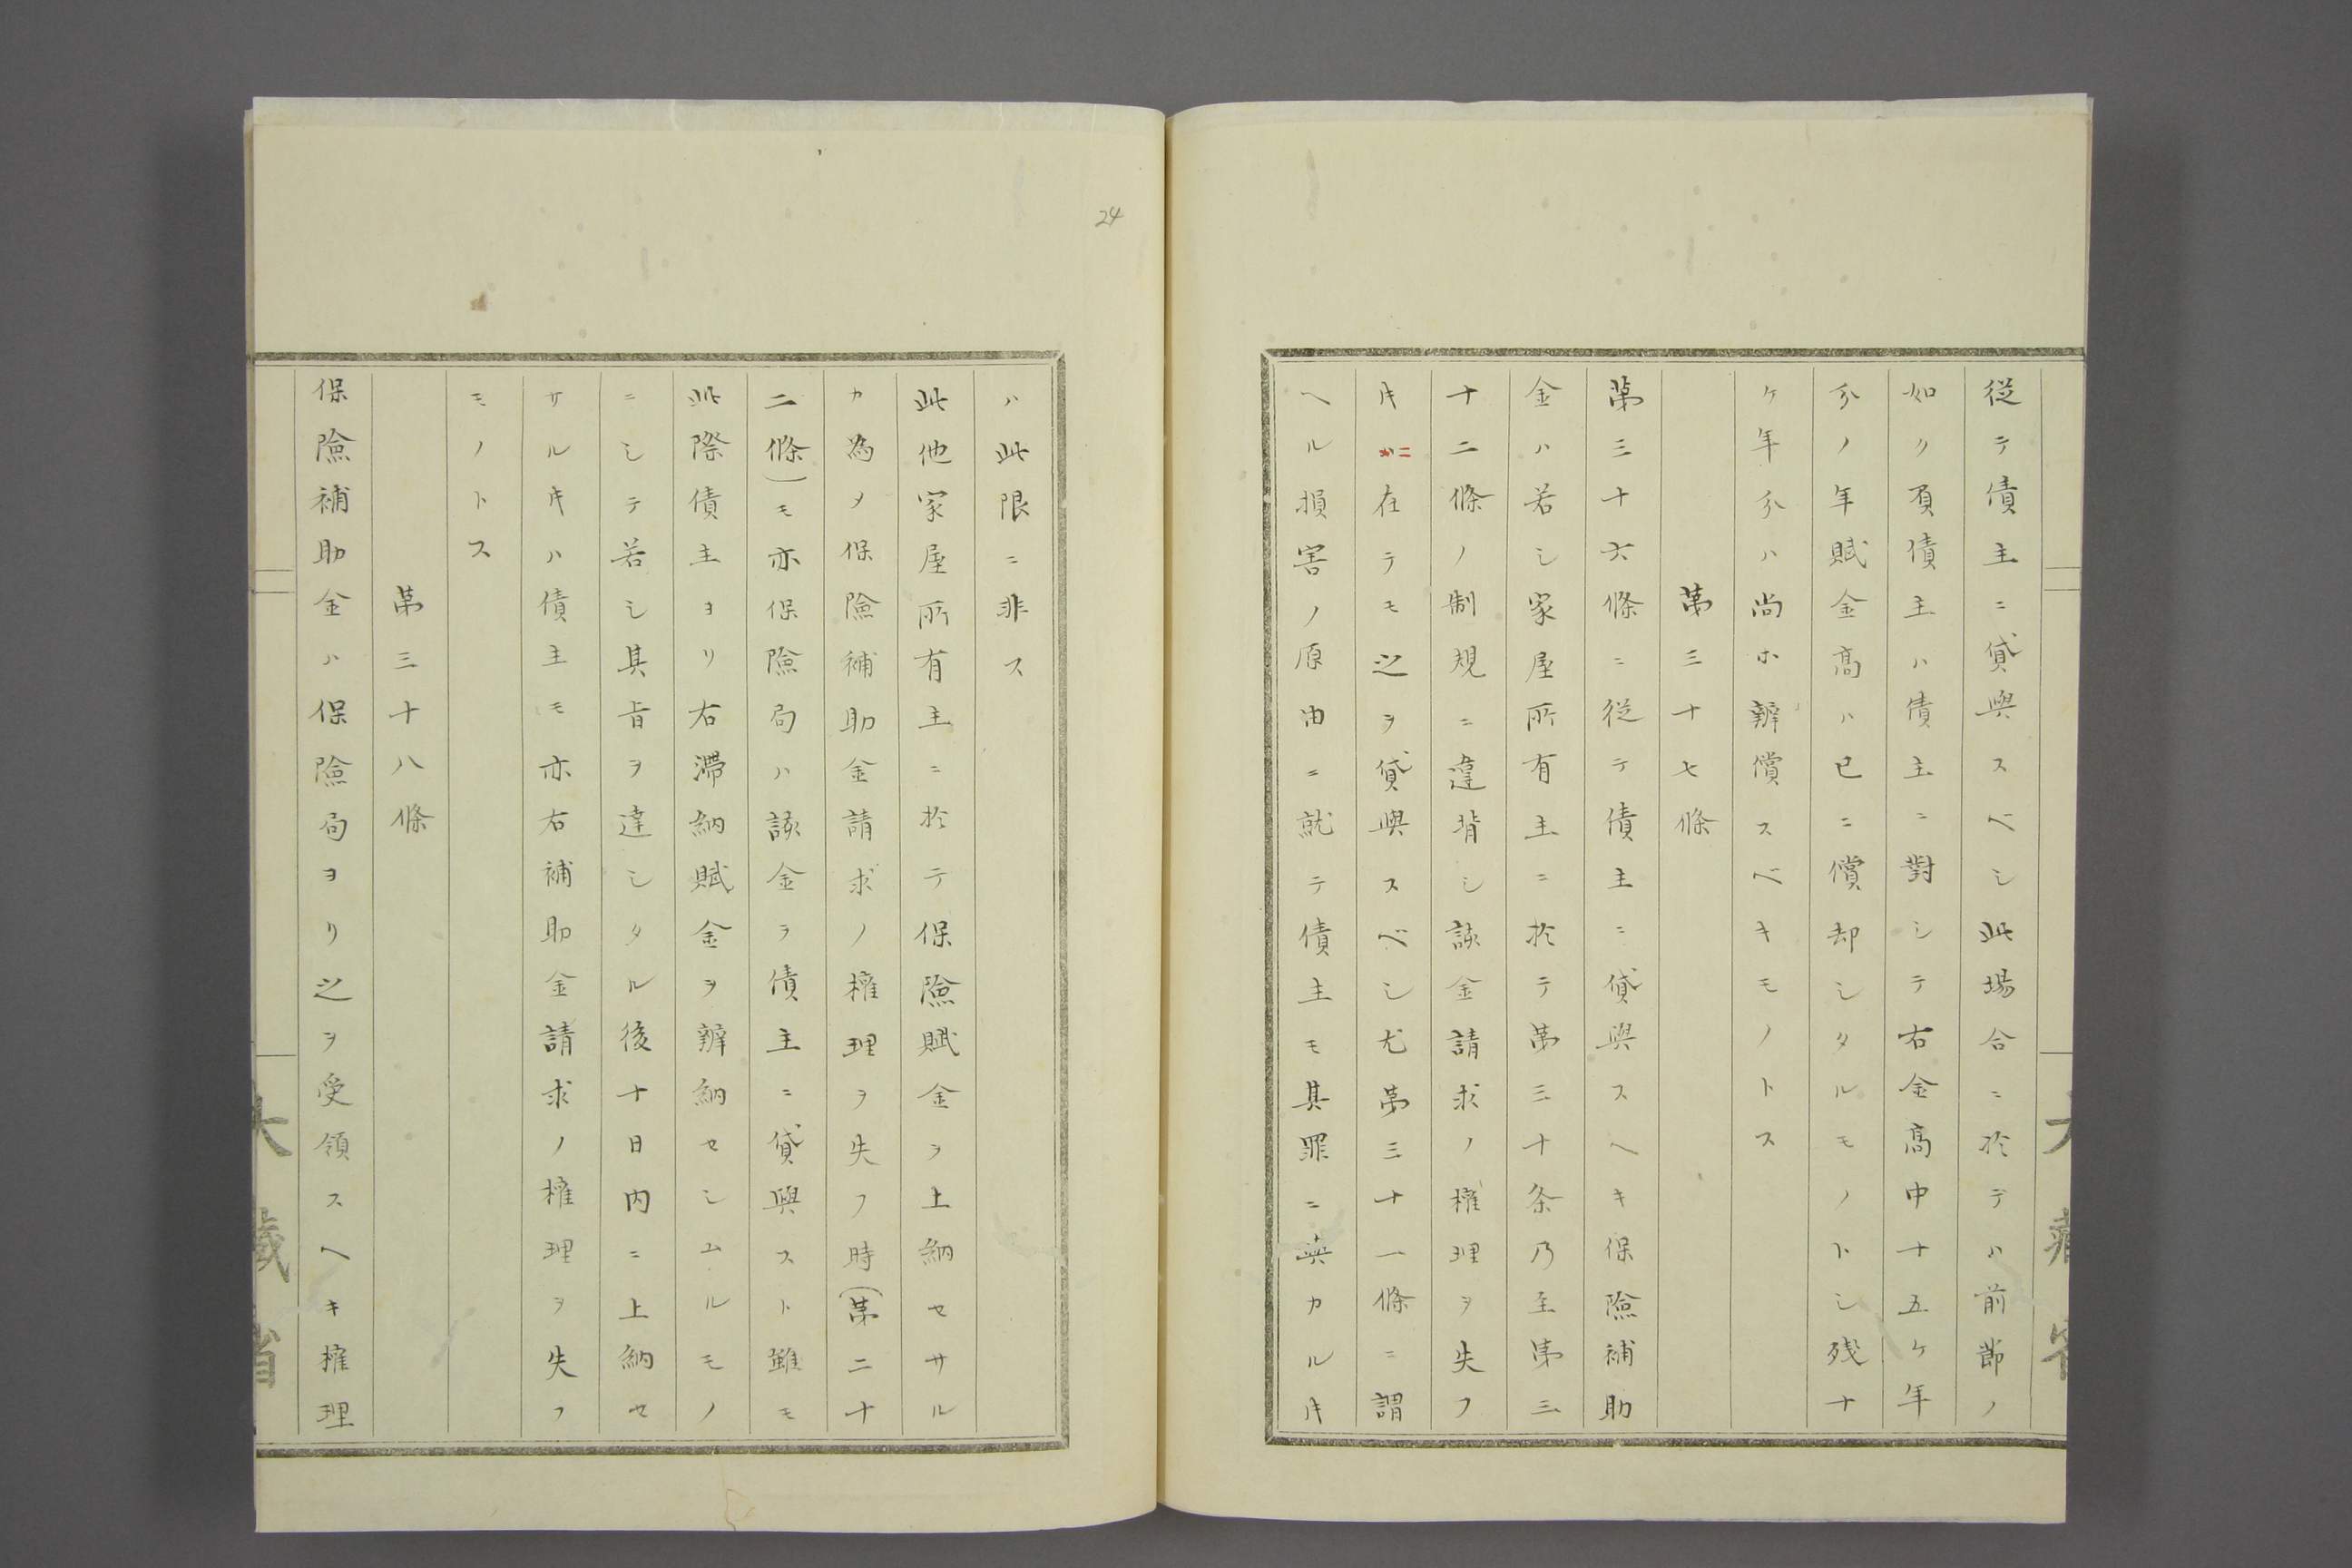 従テ債主ニ貸與スベシ此場合ニ於デハ前節ノ
如ク負債主ハ債主ニ對シテ右金高中十五ケ年
分ノ年賦金高ハ已ニ償却シタルモノトシ残ナ
ケ年分ハ尚ホ辨償スベキモノトス
第三十七條
第三十六條ニ従テ債主ニ貸與スヘキ保險補助
金ハ若シ家屋所有主ニ於テ第三十条乃至第三
十二條ノ制規ニ違背シ該金請求ノ権理ヲ失フ
𪜈ニ在テモ之ヲ貸與スベシ尤第三十一條ニ謂
ヘル損害ノ原由ニ就テ債主モ其罪ニ與カル𪜈
ハ此限ニ非ス
此他家屋所有主ニ於テ保險賦金ヲ上納セサル
カ為メ保險補助金請求ノ権理ヲ失フ時(第二十
二條)モ亦保險局ハ該金ヲ債主ニ貸與スト雖モ
此際債主ヨリ右滯納賦金ヲ辨納セシムルモノ
ニシテ若シ其旨ヲ達シタル後十日内ニ上納セ
サル𪜈ハ債主モ亦右補助金請求ノ権理ヲ失フ
モノトス
第三十八條
保險補助金ハ保險局ヨリ之ヲ受領スヘキ権理
大藏省
大藏省
24